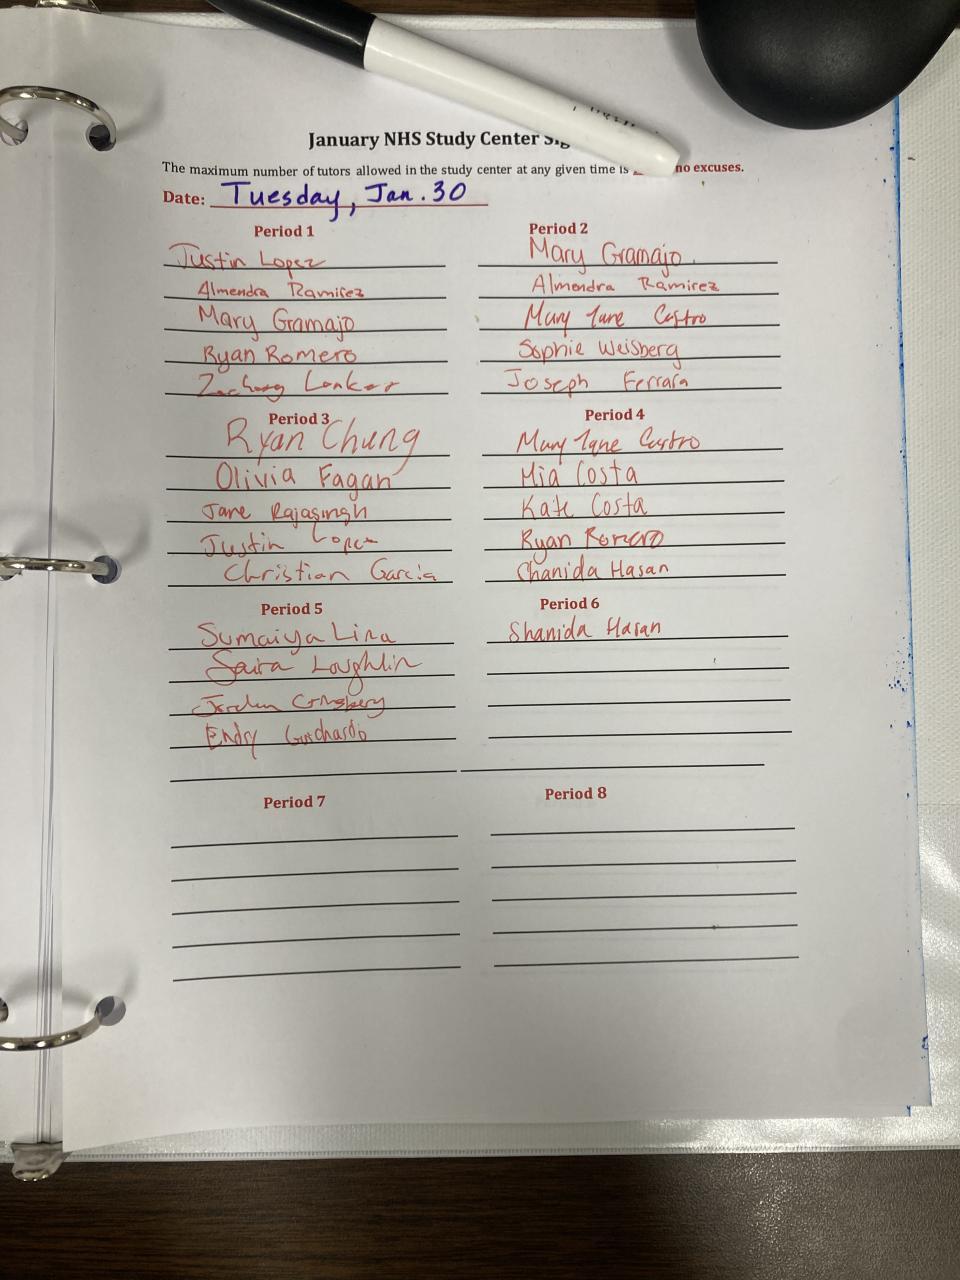 January NHS Study Center
The maximum number of tutors allowed in the study center at any given time is no excuses.
Date: Tuesday, Jan. 30
Period 1
Justin Lopez
Almendra Ramirez
Mary Gramajo
Ryan Romero
Zachary
Period 2
Mary Gramajo
Almendra Ramirez
Mary Jane Castro
Sophie Weisberg
Joseph Ferrara
Period 3
Ryan Chung
Olivia Fagan
Jane Rajasingh
Justin Lopez
Christian Garcia
Period 4
Mary Jane Castro
Mia Costa
Kate Costa
Ryan Romero
Shanida Hasan
Period 5
Sumaiya Lira
Saira Loughlin
Endy Guichardo
Period 6
Shanida Hasan
Period 7
Period 8